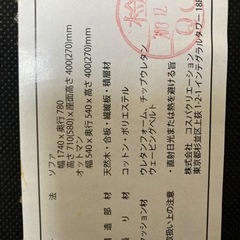 法
ソファ
幅1740×奥行780
高さ710(580)×座面高さ400(270)mm
オットマン
幅540×奥行540×高さ400(270)mm
構造部材 天然木・合板・繊維板・積層材
張り材 コットン・ポリエステル
クッション材 ウレタンフォーム・チップウレタン
ウェービングベルト
取扱い上の注意 ・直射日光または熱を避ける旨
株式会社 コスパクリエーション
東京都杉並区上荻1-2-1インテグラルタワー18F
検